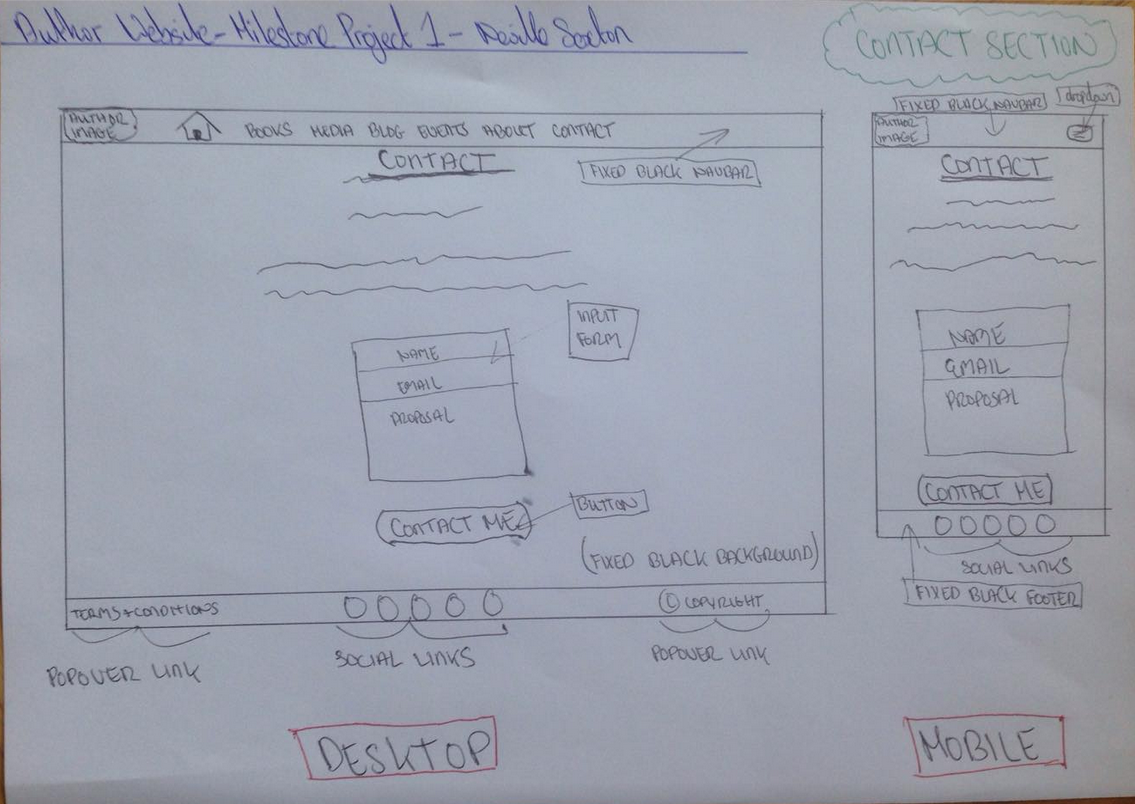 Author Website - Milestone Project 1 - Neville Sexton
CONTACT SECTION
AUTHOR
IMAGE
BOOKS MEDIA BLOG EVENTS ABOUT CONTACT
CONTACT
FIXED BLACK NAVBAR
INPUT
FORM
NAME
EMAIL
PROPOSAL
CONTACT ME
BUTTON
(FIXED BLACK BACKGROUND)
TERMS+CONDITIONS
© COPYRIGHT
POPOVER LINK
SOCIAL LINKS
POPOVER LINK
DESKTOP
FIXED BLACK NAVBAR
dropdown
AUTHOR
IMAGE
CONTACT
NAME
EMAIL
PROPOSAL
CONTACT ME
SOCIAL LINKS
FIXED BLACK FOOTER
MOBILE